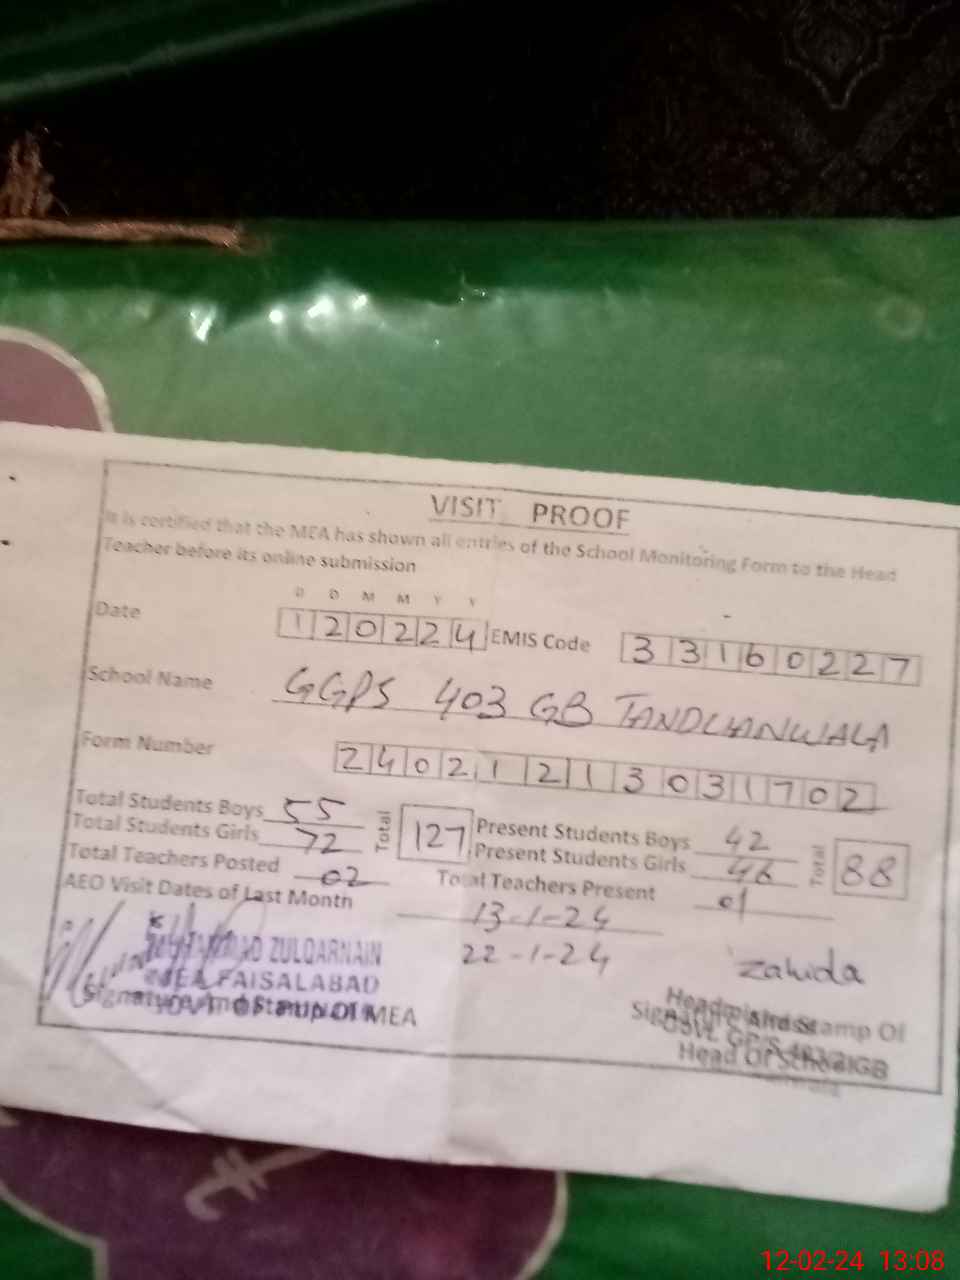 VISIT PROOF
It is certified that the MEA has shown all entries of the School Monitoring Form to the Head
Teacher before its online submission
D D M M Y Y
Date 120224 EMIS Code 33160227
School Name GGPS 403 GB TANDLIANWALA
Form Number 24021213031702
Total Students Boys 55 Total 127 Present Students Boys 42 Total 88
Total Students Girls 72 Present Students Girls 46
Total Teachers Posted 02 Total Teachers Present 01
AEO Visit Dates of Last Month 13-1-24
22-1-24
ZULQARNAIN
MEA FAISALABAD
Signature And Stamp Of MEA
Zahida
Headmistress
Signature And Stamp Of
Head Of School
12-02-24 13:08